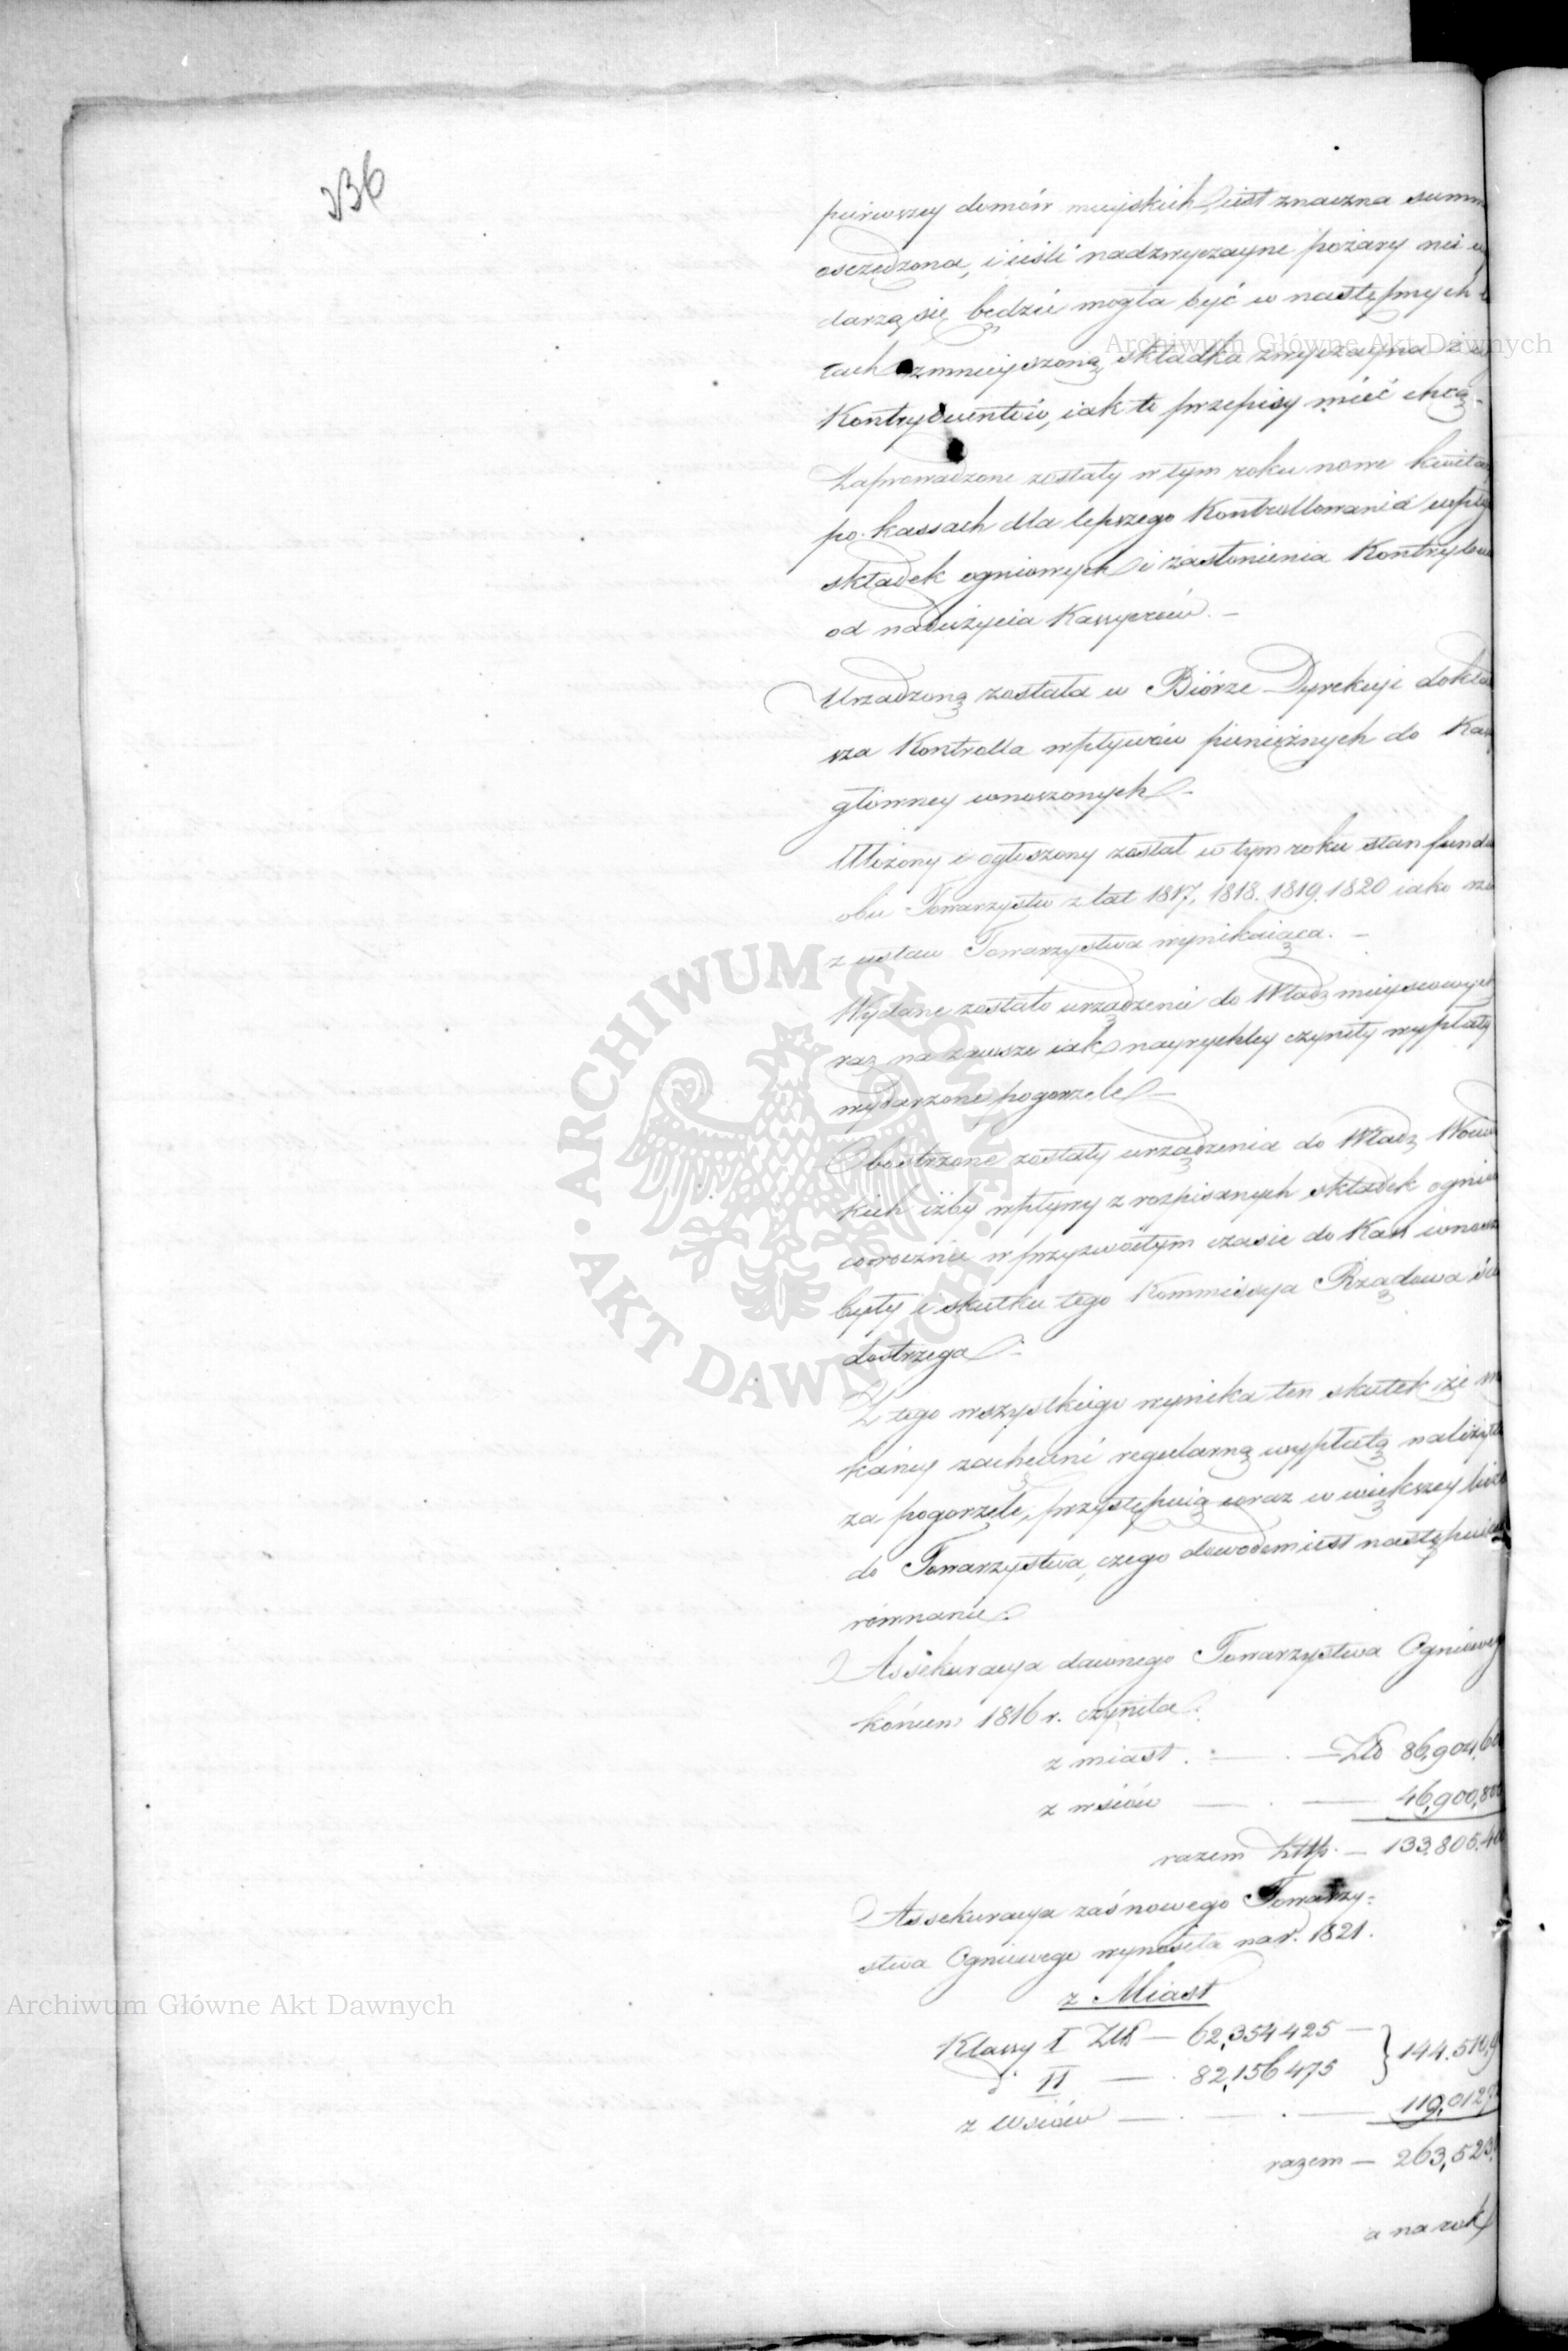 336
pierwszey domów mieyskich iest znaczna summ
osczędzona, i ieśli nadzwyczayne pożary nie wy
darzą się będzie mogła być w następnych la
tach zmnieyszoną składka zwyczayna z
Kontrybuentów, iak to przepisy mieć chcą.
Zaprowadzone zostały w tym roku nowe kwita
po kassach dla lepszego Kontrollowania wpły
składek ogniowych i zasłonienia Kontrybu
od nadużycia Kassyerów. –
Urządzoną została w Biórze Dyrekcyi dokła
sza Kontrolla wpływów pieniężnych do Kas
główney wnoszonych –
Ułożony i ogłoszony został w tym roku stan fundu
obu Towarzystw z lat 1817, 1818. 1819. 1820 iako rze
z ustaw Towarzystwa wynikaiąca. –
Wydane zostało urządzenie do Władz mieyscowych
raz na zawsze iak nayrychley czyniły wypłaty
wydarzone pogorzele –
Obostrzone zostały urządzenia do Władz Woiew
kich iżby wpływy z rozpisanych składek ognio
corocznie w przyzwoitym czasie do Kass wnosz
były i skutku tego Kommissya Rządowa
dostrzega –
Z tego wszystkiego wynika ten skutek iże m
kańcy zachęceni regularną wypłatą należyto
za pogorzele, przystępuią coraz w większey licz
do Towarzystwa, czego dowodem iest następuiące
równanie.
Assekuracya dawnego Towarzystwa Ogniowego
końcem 1816 r. czyniła
z miast . — . — Złt 86,904,60
z wsiów — . — 46,900,80
razem Złtp. — 133.805.40
Assekuracya zaś nowego Towarzy-
stwa Ogniowego wynosiła na r. 1821.
z Miast
Klassy I Złt — 62,354 425 — } 144.510,9
d° II — . 82,156 475
z wsiów — . — . — 119,012,
razem — 263,523,
a na rok
Archiwum Główne Akt Dawnych
Archiwum Główne Akt Dawnych
ARCHIWUM GŁÓWNE · AKT DAWNYCH ·